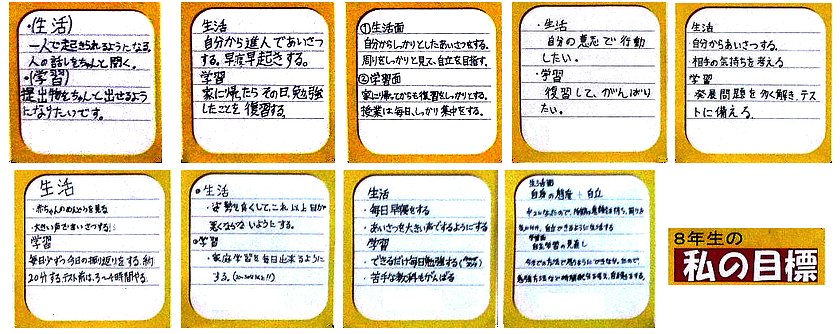 ・(生活)
一人で起きられるようになる。
人の話しをちゃんと聞く。
・(学習)
提出物をちゃんと出せるよう
になりたいです。
生活
自分から進んであいさつ
する。早寝早起きする。
学習
家に帰ったらその日、勉強
したことを復習する。
①生活面
自分からしっかりとしたあいさつをする。
周りをしっかりと見て、自立を目指す。
②学習面
家に帰ってからも復習をしっかりとする。
授業は毎日、しっかり集中をする。
・生活
自分の意志で行動
したい。
・学習
復習して、がんばり
たい。
生活
・自分からあいさつする。
・相手の気持ちを考える
学習
・発展問題を多く解き、テス
トに備える。
生活
・赤ちゃんのめんどうを見る
・大きい声であいさつする
学習
毎日少しずつ今日の振り返りをする。約
20分する テスト前は、3〜4時間やる。
・生活
・姿勢を良くして、これ以上目が
悪くならないようにする。
・学習
・家庭学習を毎日出来るように
する。
生活
・毎日早寝をする
・あいさつを大きい声でするようにする
学習
・できるだけ毎日勉強する
・苦手な教科もがんばる
生活面
自身の態度 + 自立
学習面
自主学習の見直し
8年生の
私の目標